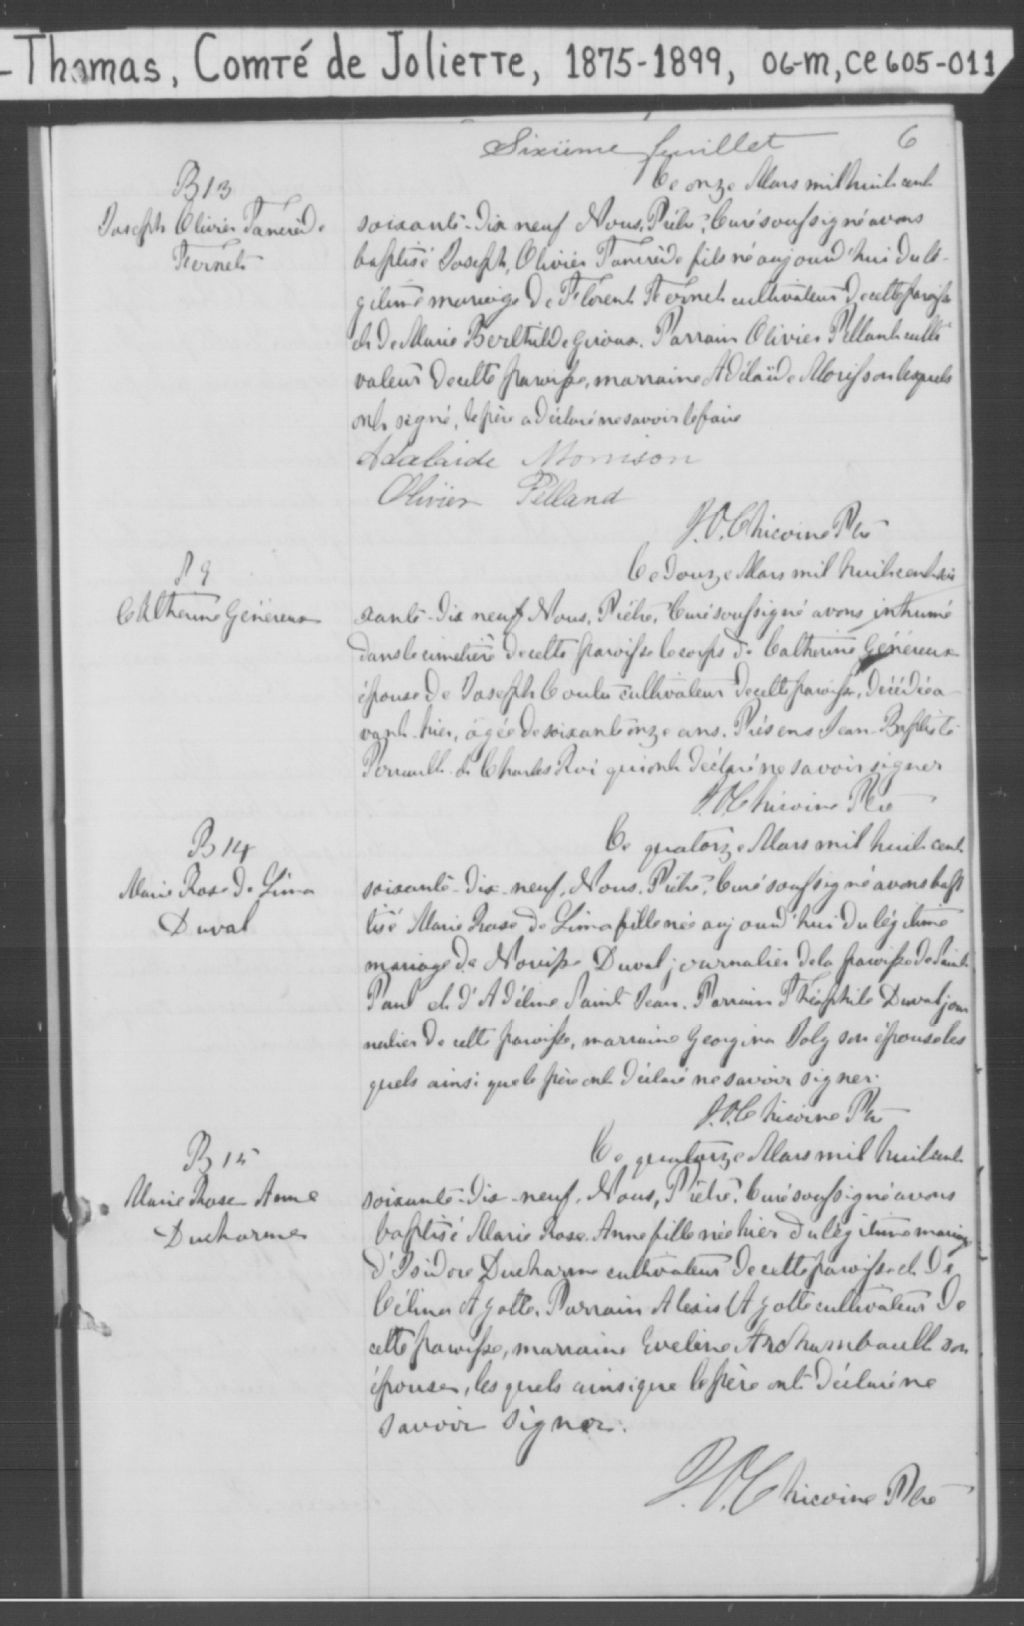 -Thomas, Comté de Joliette, 1875-1899, 06-M, CE605-011
Sixième feuillet 6
B 13
Joseph Olivier Tancrède
Fernet
Ce onze Mars mil huit cent
soixante-dix neuf Nous, Prêtre, Curé soussigné avons
baptisé Joseph, Olivier Tancrède fils né aujourd'hui du lé-
gitime mariage de Florent Fernet cultivateur de cette paroisse
et de Marie Berthilde Giroux. Parrain Olivier Pelland culti
vateur de cette paroisse, marraine Adélaïde Morisson lesquels
ont signé, le père a déclaré ne savoir le faire
Adelaide Morrison
Olivier Pelland
J.O. Chicoine Ptre
S 9
Catherine Généreux
Ce douze Mars mil huit cent soi
xante-dix neuf Nous, Prêtre, Curé soussigné avons inhumé
dans le cimetière de cette paroisse le corps de Catherine Généreux
épouse de Joseph Coutu cultivateur de cette paroisse, décédée a-
vant-hier, âgée de soixante onze ans. Présens Jean-Baptiste
Perrault et Charles Roi qui ont déclaré ne savoir signer
J.O. Chicoine Ptre
B 14
Marie Rose de Lima
Duval
Ce quatorze Mars mil huit cent
soixante-dix-neuf, Nous, Prêtre, Curé soussigné avons bap
tisé Marie Rose de Lima fille née aujourd'hui du légitime
mariage de Duval journalier de la paroisse de Saint
Paul et d'Adéline Saint Jean. Parrain Théophile Duval jour
nalier de cette paroisse, marraine Georgina Poly son épouse les
quels ainsi que le père ont déclaré ne savoir signer.
J.O. Chicoine Ptre
B 15
Marie Rose Anne
Ducharme
Ce quatorze Mars mil huit cent
soixante-dix-neuf, Nous, Prêtre, Curé soussigné avons
baptisé Marie Rose Anne fille née hier du légitime mariage
d'Isidore Ducharme cultivateur de cette paroisse et de
Célina Ayotte. Parrain Alexis Ayotte cultivateur de
cette paroisse, marraine Eveline Archambault son
épouse, les quels ainsi que le père ont déclaré ne
savoir signer.
J.O. Chicoine Ptre